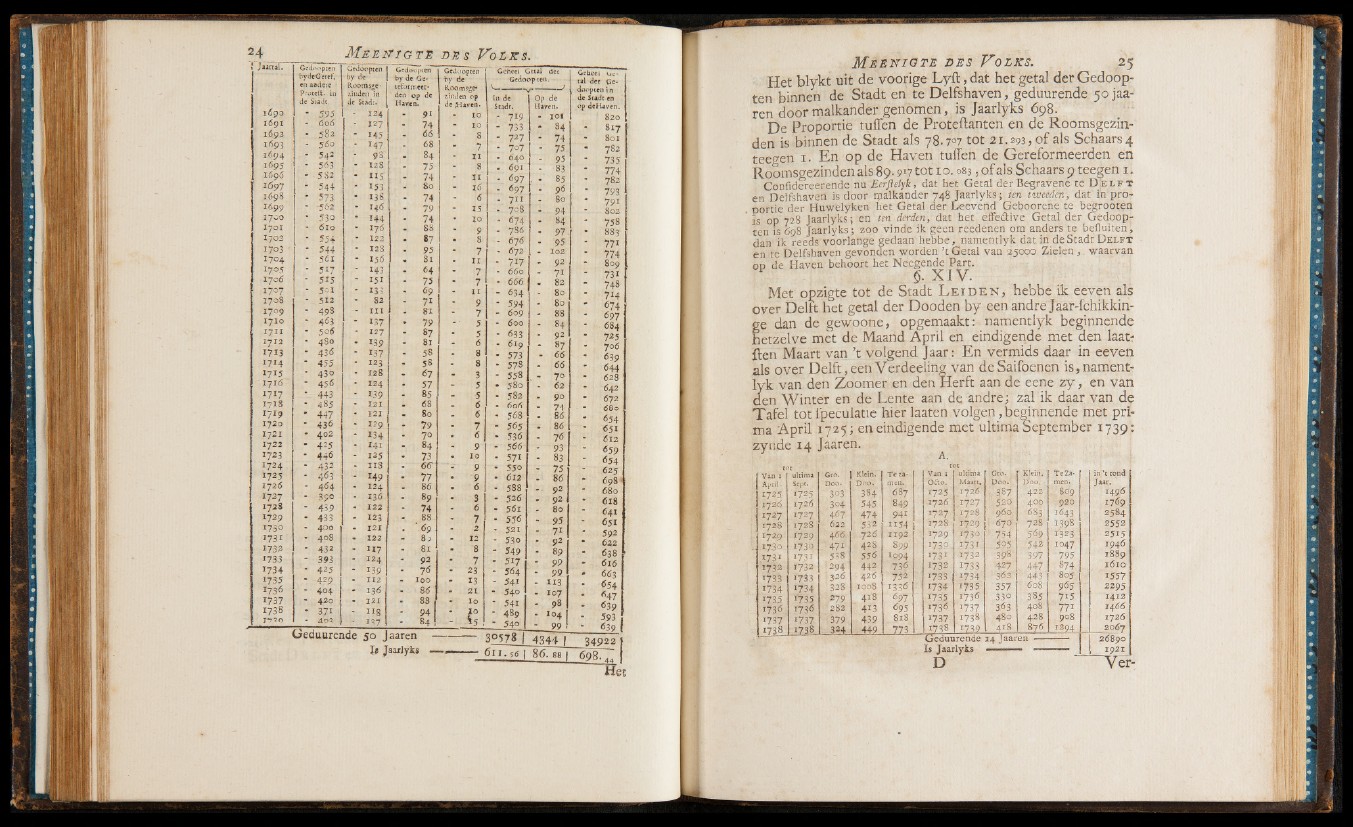 24 MEENIGTE DES VOLKS.
Jaartal. | Gedoopten by de Geref. en andere Protest. in de Stadt. | Gedoopten by de Roomsgezinden in de Stadt. | Gedoopten by de Gereformeerden op de Haven. | Gedoopten by de Roomsgezinden op de Haven. | Geheel Getal der Gedoopten. In de Stadt. | Op de Haven. | Geheel Getal der Gedoopten in de Stadt en op de Haven.
1690 - 595 - 124 - 91 - 10 - 719 - 101 820
1691 - 606 - 127 - 74 - 10 - 733 - 84 - 817
1692 - 582 - 145 - 66 - 8 - 727 - 74 - 801
1693 - 560 - 147 - 68 - 7 - 707 - 75 - 782
1694 - 542 - 98 - 84 - 11 - 640 - 95 - 735
1695 - 563 - 128 - 75 - 8 - 691 - 83 - 774
1696 - 582 - 115 - 74 - 11 - 697 - 85 - 782
1697 - 544 - 153 - 80 - 16 - 697 - 96 - 793
1698 - 573 - 138 - 74 - 6 - 711 - 80 - 791
1699 - 562 - 146 - 79 - 15 - 708 - 94 - 802
1700 - 530 - 144 - 74 - 10 - 674 - 84 - 758
1701 - 610 - 176 - 88 - 9 - 786 - 97 - 883
1702 - 554 - 122 - 87 - 8 - 676 - 95 - 771
1703 - 544 - 128 - 95 - 7 - 672 - 102 - 774
1704 - 561 - 156 - 81 - 11 - 717 - 92 - 809
1705 - 517 - 143 - 64 - 7 - 660 - 71 - 731
1706 - 515 - 151 - 75 - 7 - 666 - 82 - 748
1707 - 501 - 133 - 69 - 11 - 634 - 80 - 714
1708 - 512 - 82 - 71 - 9 - 594 - 80 - 674
1709 - 498 - 111 - 81 - 7 - 609 - 88 - 697
1710 - 463 - 137 - 79 - 5 - 600 - 84 - 684
1711 - 506 - 127 - 87 - 5 - 633 - 92 - 725
1712 - 480 - 139 - 81 - 6 - 619 - 87 - 706
1713 - 436 - 137 - 58 - 8 - 573 - 66 - 639
1714 - 455 - 123 - 58 - 8 - 578 - 66 - 644
1715 - 430 - 128 - 67 - 3 - 558 - 70 - 628
1716 - 456 - 124 - 57 - 5 - 580 - 62 - 642
1717 - 443 - 139 - 85 - 5 - 582 - 90 - 672
1718 - 485 - 121 - 68 - 6 - 606 - 74 - 680
1719 - 447 - 121 - 80 - 6 - 568 - 86 - 654
1720 - 436 - 129 - 79 - 7 - 565 - 86 - 651
1721 - 402 - 134 - 70 - 6 - 536 - 76 - 612
1722 - 425 - 141 - 84 - 9 - 566 - 93 - 659
1723 - 446 - 125 - 73 - 10 - 571 - 83 - 654
1724 - 432 - 118 - 66 - 9 - 550 - 75 - 625
1725 - 463 - 149 - 77 - 9 - 612 - 86 - 698
1726 - 464 - 124 - 86 - 6 - 588 - 92 - 680
1727 - 390 - 136 - 89 - 3 - 526 - 92 - 618
1728 - 439 - 122 - 74 - 6 - 561 - 80 - 641
1729 - 433 - 123 - 88 - 7 - 556 - 95 - 651
1730 - 400 - 121 - 69 - 2 - 521 - 71 - 592
1731 - 408 - 122 - 80 - 12 - 530 - 92 - 622
1732 - 432 - 117 - 81 - 8 - 549 - 89 - 638
1733 - 393 - 124 - 92 - 7 - 517 - 99 - 616
1734 - 425 - 139 - 76 - 23 - 564 - 99 - 663
1735 - 429 - 112 - 100 - 13 - 541 - 113 - 654
1736 - 404 - 136 - 86 - 21 - 540 - 107 - 647
1737 - 420 - 121 - 88 - 10 - 541 - 98 - 639
1738 - 371 - 118 - 94 - 10 - 489 - 104 - 593
1739 - 403 - 137 - 84 - 15 - 540 - 99 - 639
Geduurende 50 Jaaren 30578 | 4344 | 34922
Is Jaarlyks 611.56 | 86.88 | 698.44
Het
MEENIGTE DES VOLKS. 25
Het blykt uit de voorige Lyst, dat het getal der Gedoop-
ten binnen de Stadt en te Delfshaven, geduurende 50 jaa-
ren door malkander genomen, is Jaarlyks 698.
De Proportie tussen de Protestanten en de Roomsgezin-
den is binnen de Stadt als 78.707 tot 21.293, of als Schaars 4
teegen 1. En op de Haven tussen de Gereformeerden en
Roomsgezinden als 89.917 tot 10.083, of als Schaars 9 teegen 1.
Considereerende nu Eerstelyk, dat het Getal der Begravene te DELFT
en Delfshaven is door malkander 748 Jaarlyks; ten tweeden, dat in pro-
portie der Huwelyken het Getal der Leevend Geboorene te begrooten
is op 728 Jaarlyks; en ten derden, dat het effective Getal der Gedoop-
ten is 698 Jaarlyks; zoo vinde ik geen reedenen om anders te besluiten,
dan ik reeds voorlange gedaan hebbe, namentlyk dat in de Stadt DELFT
en te Delfshaven gevonden worden 't Getal van 25000 Zielen, waarvan
op de Haven behoort het Neegende Part.
§. XIV.
Met opzigte tot de Stadt LEIDEN, hebbe ik eeven als
over Delft het getal der Dooden by een andre Jaar-schikkin-
ge dan de gewoone, opgemaakt: namentlyk beginnende
hetzelve met de Maand April en eindigende met den laat-
sten Maart van 't volgend Jaar: En vermids daar in eeven
als over Delft, een Verdeeling van de Saisoenen is, nament-
lyk van den Zoomer en den Herft aan de eene zy, en van
den Winter en de Lente aan de andre; zal ik daar van de
Tafel tot speculatie hier laaten volgen, beginnende met pri-
ma April 1725; en eindigende met ultima September 1739:
zynde 14 Jaaren.
A.
Van 1 April. | tot ultima Sept. | Gro. Doo. | Klein. Doo. | Te zamen. | Van 1 Octo. | tot ultima Maart. | Gro. Doo. | Klein. Doo. | Te Zamen. | in 't rond Jaar.
1725 | 1725 | 303 | 384 | 687 | 1725 | 1726 | 387 | 422 | 809 | 1496
1726 | 1726 | 304 | 545 | 849 | 1726 | 1727 | 520 | 400 | 920 | 1769
1727 | 1727 | 467 | 474 | 941 | 1727 | 1728 | 960 | 683 | 1643 | 2584
1728 | 1728 | 622 | 532 | 1154 | 1728 | 1729 | 670 | 728 | 1398 | 2552
1729 | 1729 | 466 | 726 | 1192 | 1729 | 1730 | 754 | 569 | 1323 | 2515
1730 | 1730 | 471 | 428 | 899 | 1730 | 1731 | 505 | 542 | 1047 | 1946
1731 | 1731 | 538 | 556 | 1094 | 1731 | 1732 | 398 | 397 | 795 | 1889
1732 | 1732 | 294 | 442 | 736 | 1732 | 1733 | 427 | 447 | 874 | 1610
1733 | 1733 | 326 | 426 | 752 | 1733 | 1734 | 362 | 443 | 805 | 1557
1734 | 1734 | 328 | 1008 | 1336 | 1734 | 1735 | 357 | 608 | 965 | 2295
1735 | 1735 | 279 | 418 | 697 | 1735 | 1736 | 330 | 385 | 715 | 1412
1736 | 1736 | 282 | 413 | 695 | 1736 | 1737 | 363 | 408 | 771 | 1466
1737 | 1737 | 379 | 439 | 818 | 1737 | 1738 | 480 | 428 | 908 | 1726
1738 | 1738 | 324 | 449 | 773 | 1738 | 1739 | 418 | 876 | 1294 | 2067
Geduurende 14 Jaaren 26890
Is Jaarlyks 1921
D Ver-